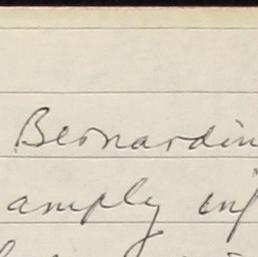 Bernardin
amply inf